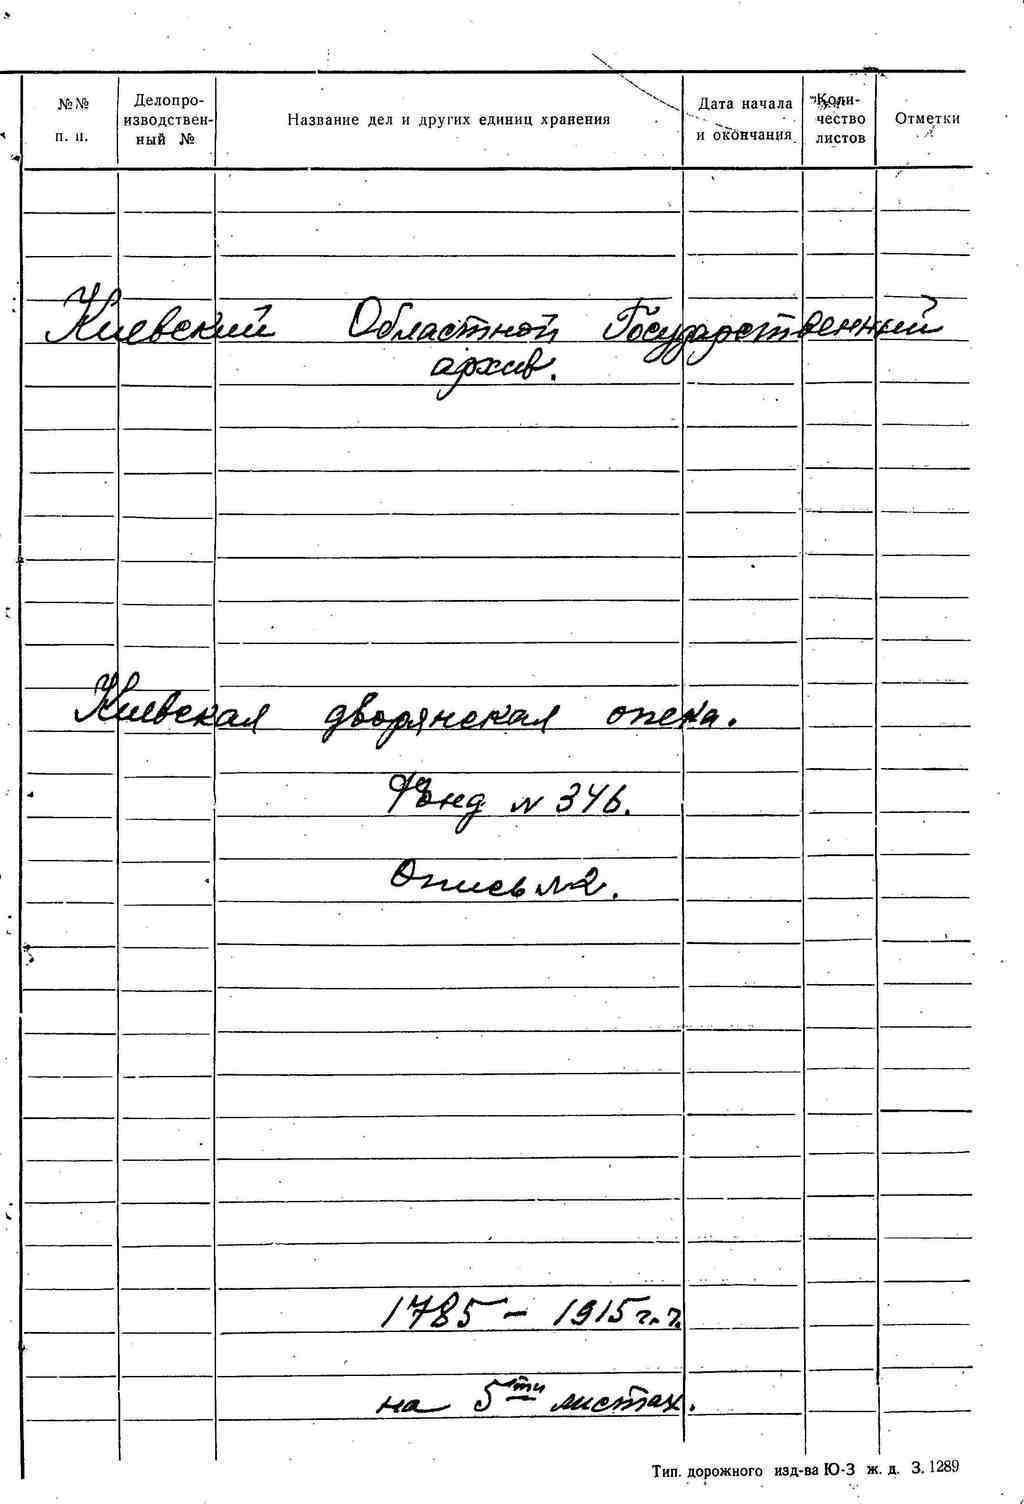 №№ п. п.
Делопро-
изводствен-
ный №
Название дел и других единиц хранения
Дата начала
и окончания
Коли-
чество
листов
Отметки
Киевский Областной Государственный
архив.
Киевская дворянская опека.
Фонд № 346.
Опись №2.
1785 - 1915 г.г.
на 5ти листах.
Тип. дорожного изд-ва Ю-З ж. д. З. 1289